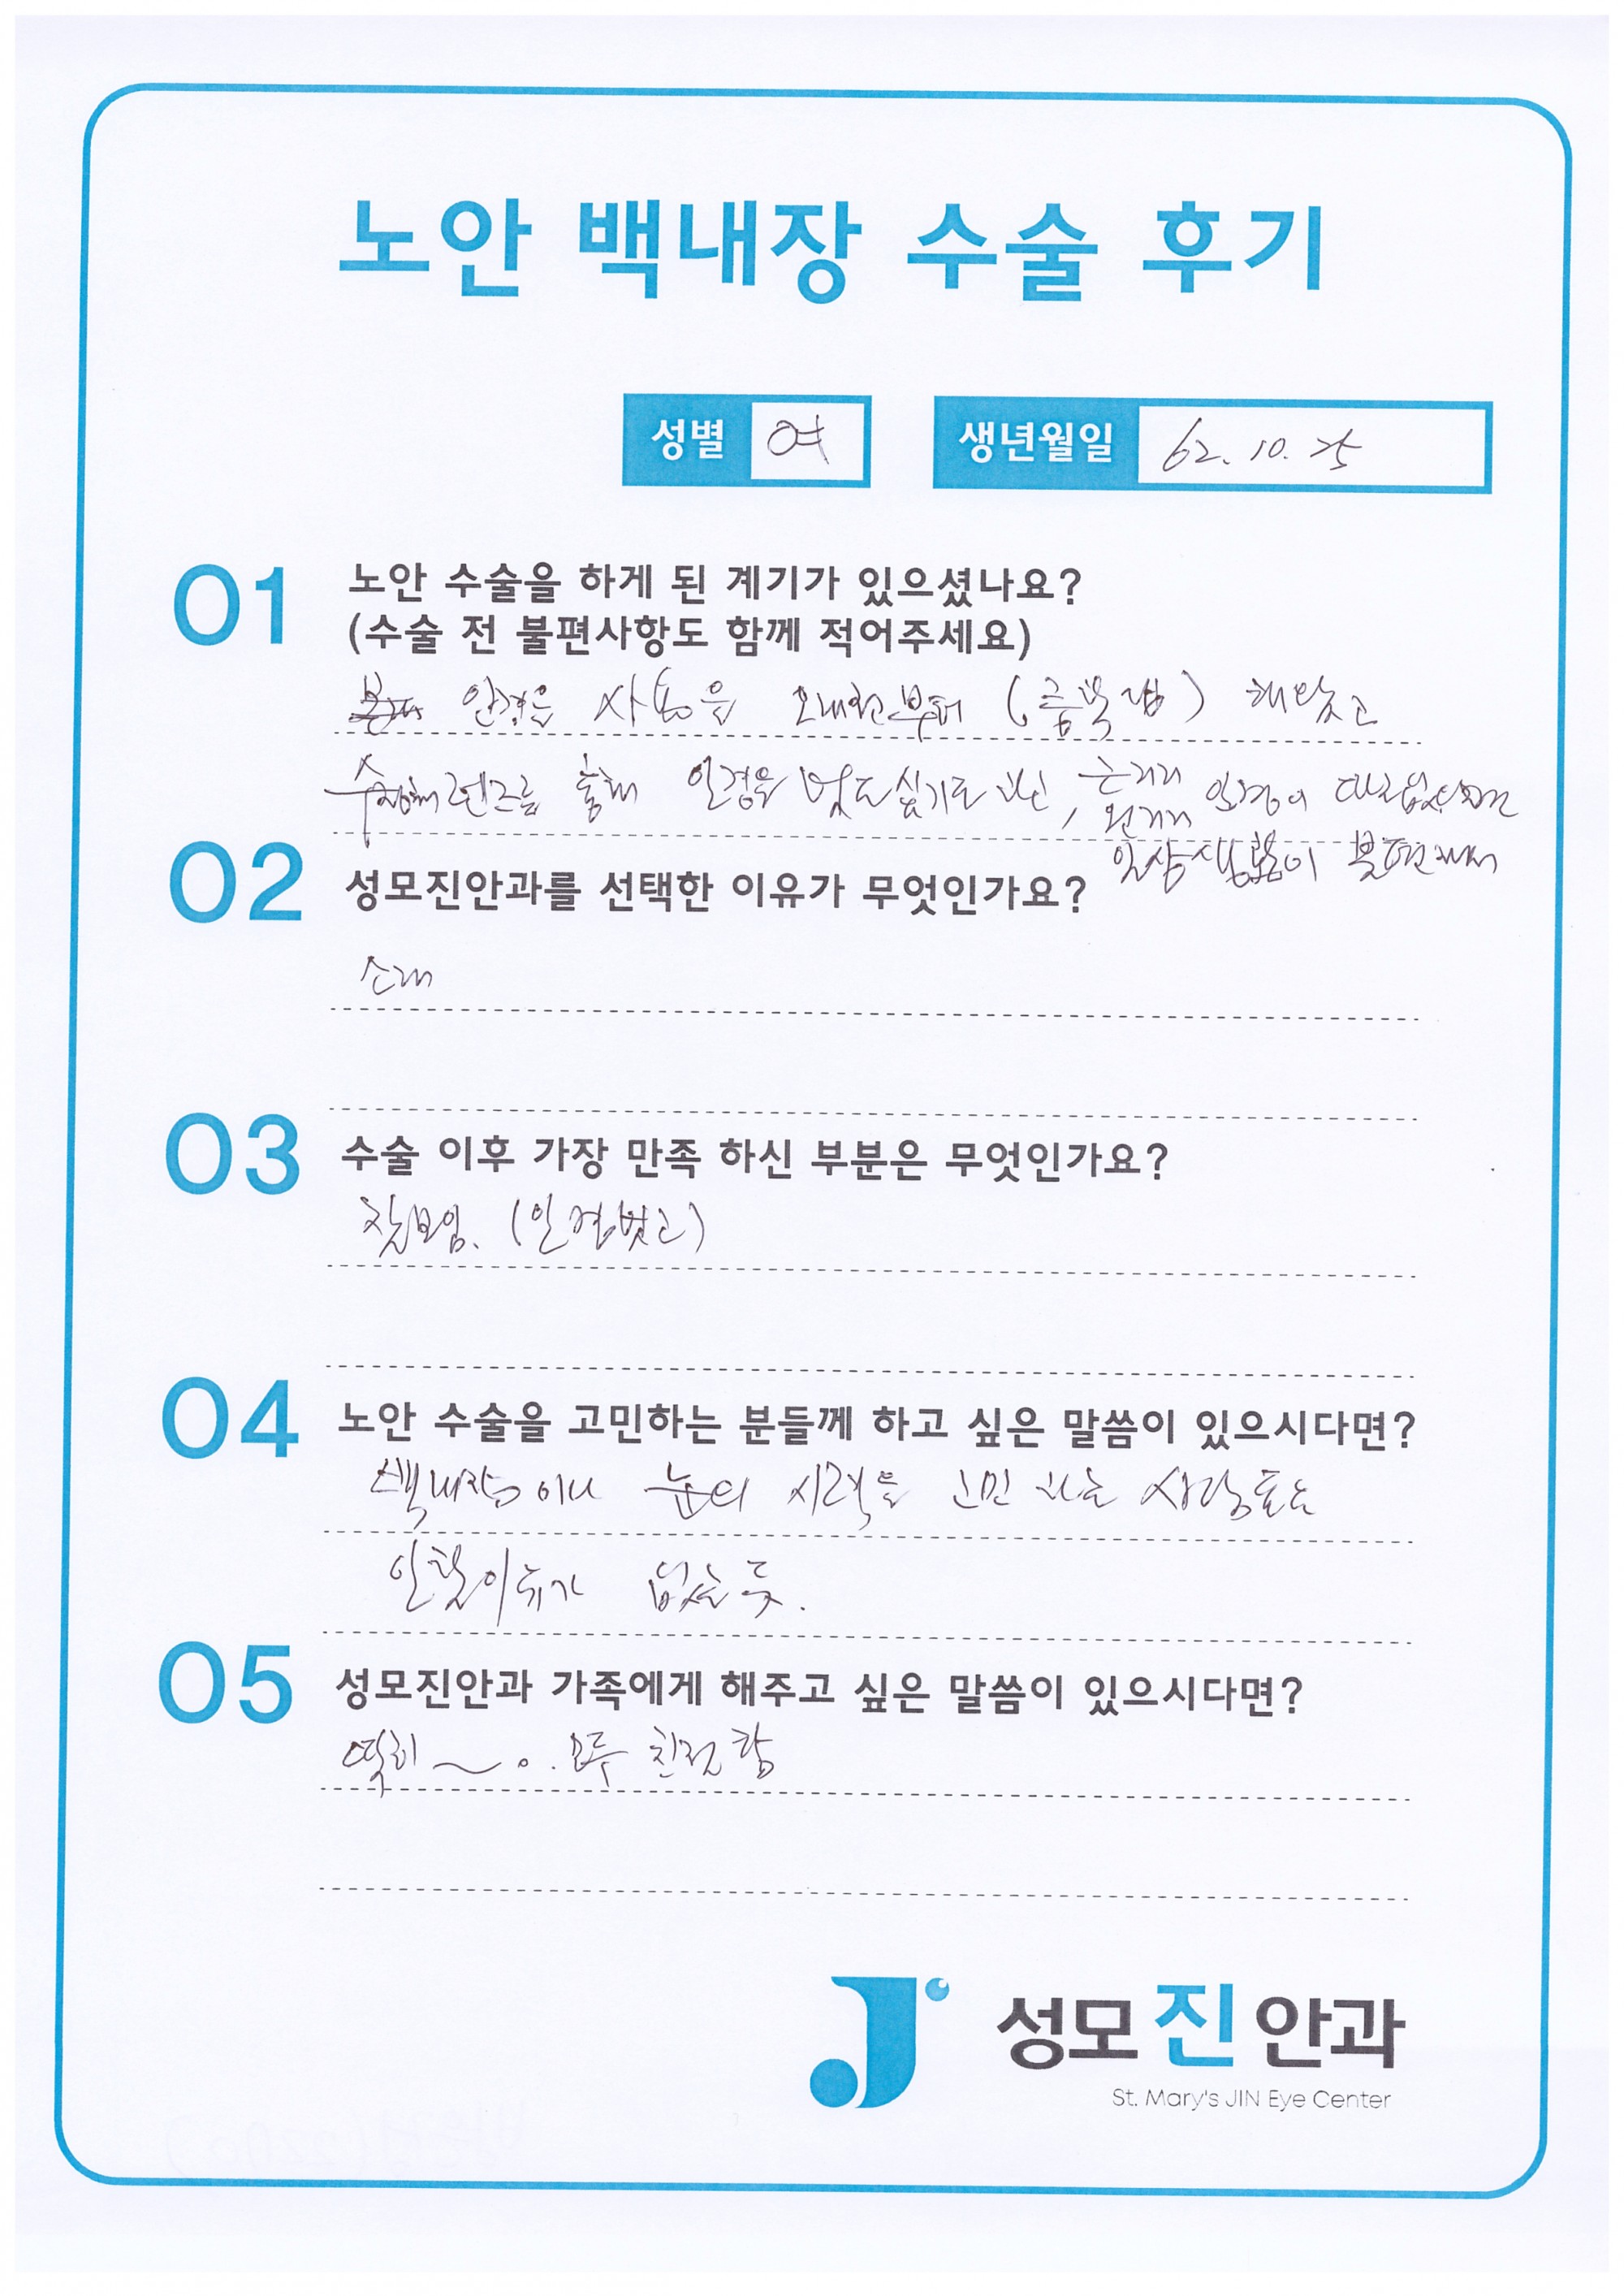 노안 백내장 수술 후기
성별 여 생년월일 62. 10. 25
01 노안 수술을 하게 된 계기가 있으셨나요?
(수술 전 불편사항도 함께 적어주세요)
안경을 사용을 오래전부터 ( ) 해왔고
수정체렌즈를 통해 안경을 벗고싶기도 하고, 근거리
원거리 안경이 따로없으면
일상생활이 불편해서
02 성모진안과를 선택한 이유가 무엇인가요?
소개
03 수술 이후 가장 만족 하신 부분은 무엇인가요?
잘보임. (안경벗고)
04 노안 수술을 고민하는 분들께 하고 싶은 말씀이 있으시다면?
백내장이나 눈의 시력을 고민하는 사람들은
안할이유가 없는 듯.
05 성모진안과 가족에게 해주고 싶은 말씀이 있으시다면?
딱히 ~. 모두 친절함
성모진안과
St. Mary's JIN Eye Center